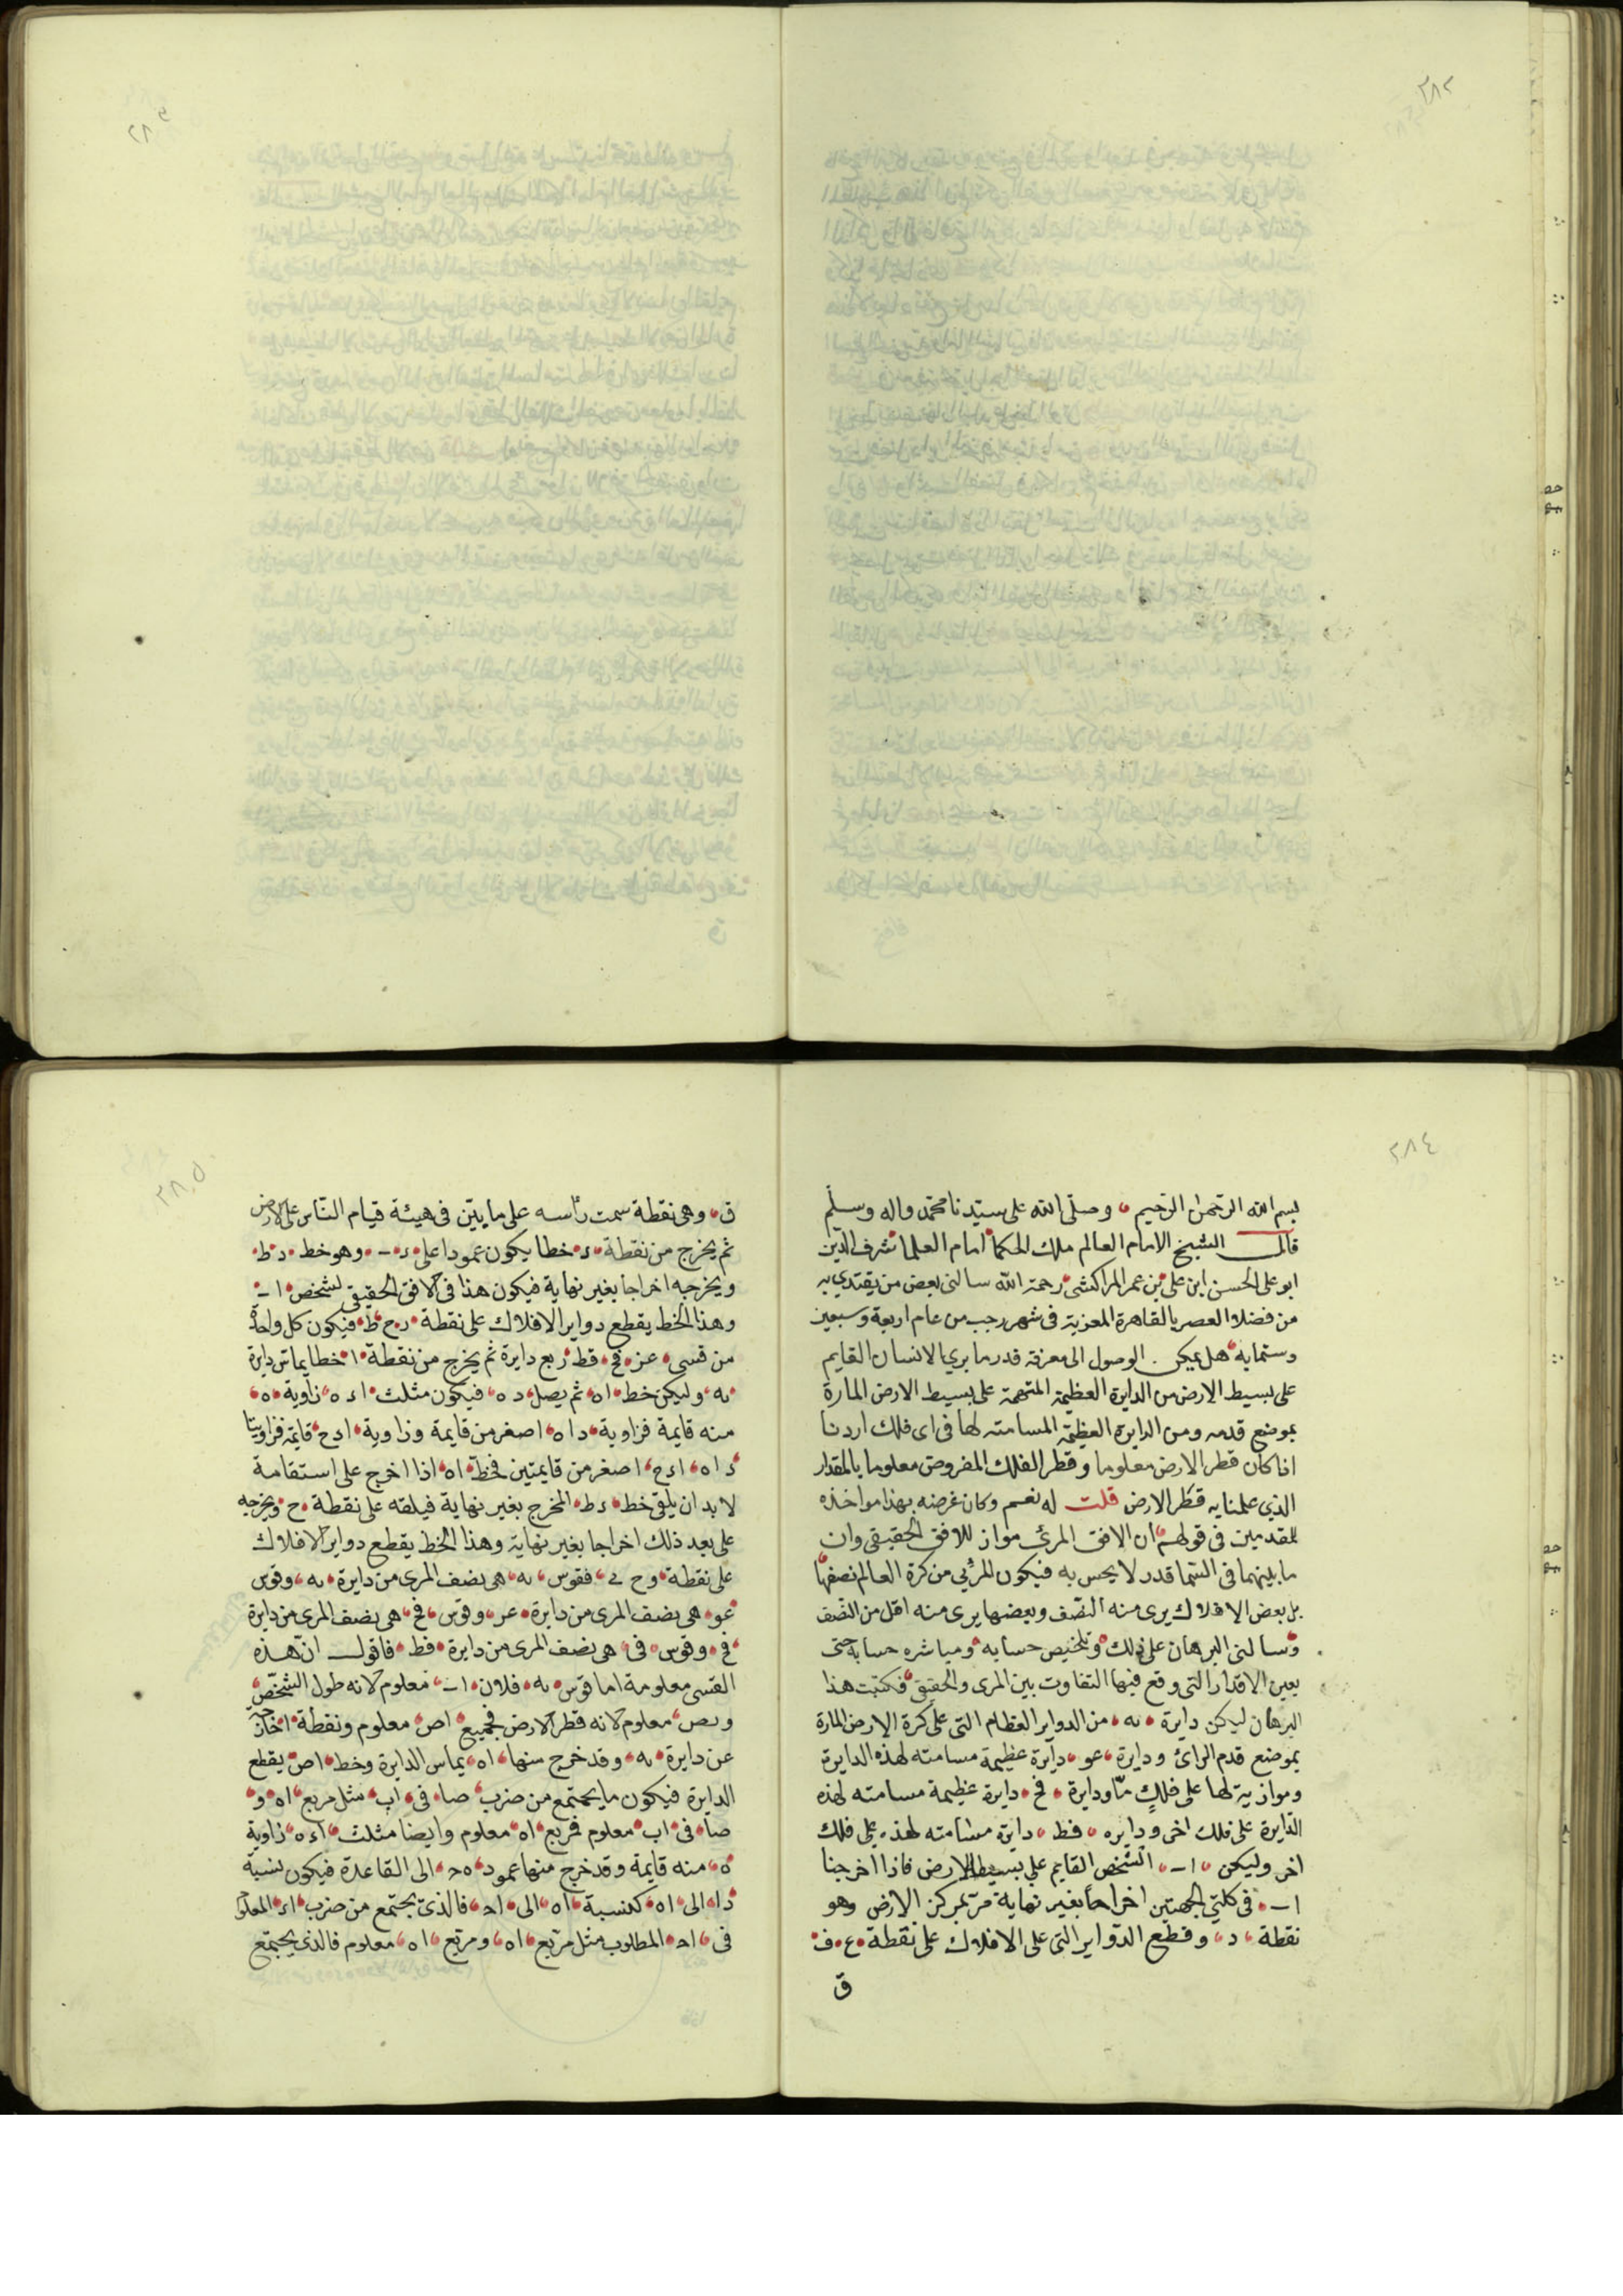 ٢٨٢
٢٨٣
٢٨٤
بسم الله الرحمن الرحيم وصلى الله على سيدنا محمد واله وسلم
قال الشيخ الامام العالم ملك الحكما امام العلما شرف الدين
ابو على الحسن ابن على بن عمر المراكشى رحمة الله سالنى بعض من يقتدي به
من فضلاء العصر بالقاهرة المعزية فى شهر رجب من عام اربعة وسبعين
وستمايه هل يمكن الوصول الى معرفة قدر ما يري الانسان القايم
على بسيط الارض من الدايرة العظيمة المتوهمة على بسيط الارض المارة
بموضع قدمه ومن الدايرة العظيمة المسامته لها فى اى فلك اردنا
اذا كان قطر الارض معلوما وقطر الفلك المفروض معلوما بالمقدار
الذي علمنا به قطر الارض قلت له نعم وكان غرضه بهذا مواخذه
المقدمين فى قولهم ان الافق المرئى مواز للافق الحقيقى وان
ما بينهما فى السما قدر لا يحس به فيكون المرئي من كرة العالم نصفها
بل بعض الافلاك يرى منه النصف وبعضها يرى منه اقل من النصف
وسالنى البرهان على ذلك وتلخيص حسابه ومباشره حسابه حتى
يعين الاقدار التى وقع فيها التفاوت بين المرى والحقيقى فكتبت هذا
البرهان ليكن دايرة به من الدواير العظام التى على كرة الارض المارة
بموضع قدم الرائ ودايرة عو دايرة عظيمة مسامته لهذه الدايرة
وموازية لها على فلك ما ودايرة فح دايرة عظيمة مسامته لهذه
الدايرة على فلك اخر ودايره قط دايرة مسامته لهذه على فلك
اخر وليكن اب الشخص القايم علي بسيط الارض فاذا اخرجنا
اب فى كلتي الجهتين اخراجا بغير نهاية مر بمركز الارض وهو
نقطة د وقطع الدواير التى على الافلاك على نقطة ع ف
ق
٢٨٥
ق وهى نقطة سمت رأسه على ما يبين فى هيئة قيام الناس على الارض
ثم يخرج من نقطة د خطا يكون عمودا على د ب وهو خط د ط
ويخرجه اخراجا بغير نهاية فيكون هذا فى الافق الحقيقى لشخص اب
وهذا الخط يقطع دواير الافلاك على نقطة ز ح ط فيكون كل واحدة
من قسى عز فح قط ربع دايرة ثم يخرج من نقطة ا خطا يماس دايرة
به وليكن خط اه ثم يصل ده فيكون مثلث اده زاوية ه
منه قايمة فزاوية داه اصغر من قايمة وزاوية ادح قايمة فزاويتا
داه ادح اصغر من قايمتين فخط اه اذا اخرج على استقامة
لا بد ان يلقى خط دط المخرج بغير نهاية فيلقه على نقطة ح ويخرجه
على بعد ذلك اخراجا بغير نهاية وهذا الخط يقطع دواير الافلاك
على نقطة وح ى فقوس به هى نصف المرى من دايرة به وقوس
عو هى نصف المرى من دايرة عو وقوس فح هى نصف المرى من دايرة
فح وقوس قى هى نصف المرى من دايرة قط فاقول ان هذه
القسى معلومة اما قوس به فلان اب معلوم لانه طول الشخص
وبص معلوم لانه قطر الارض فجميع اص معلوم ونقطة ا خارجة
عن دايرة به وقد خرج منها اه يماس الدايرة وخط اص يقطع
الدايرة فيكون ما يجتمع من ضرب صا فى اب مثل مربع اه و
صا فى اب معلوم فمربع اه معلوم وايضا مثلث اده زاوية
ه منه قايمة وقد خرج منها عمود هح الى القاعدة فيكون نسبة
دا الى اه كنسبة اه الى اح فالذى يجتمع من ضرب اد المعلوم
فى اح المطلوب مثل مربع اه ومربع اه معلوم فالذى يجتمع